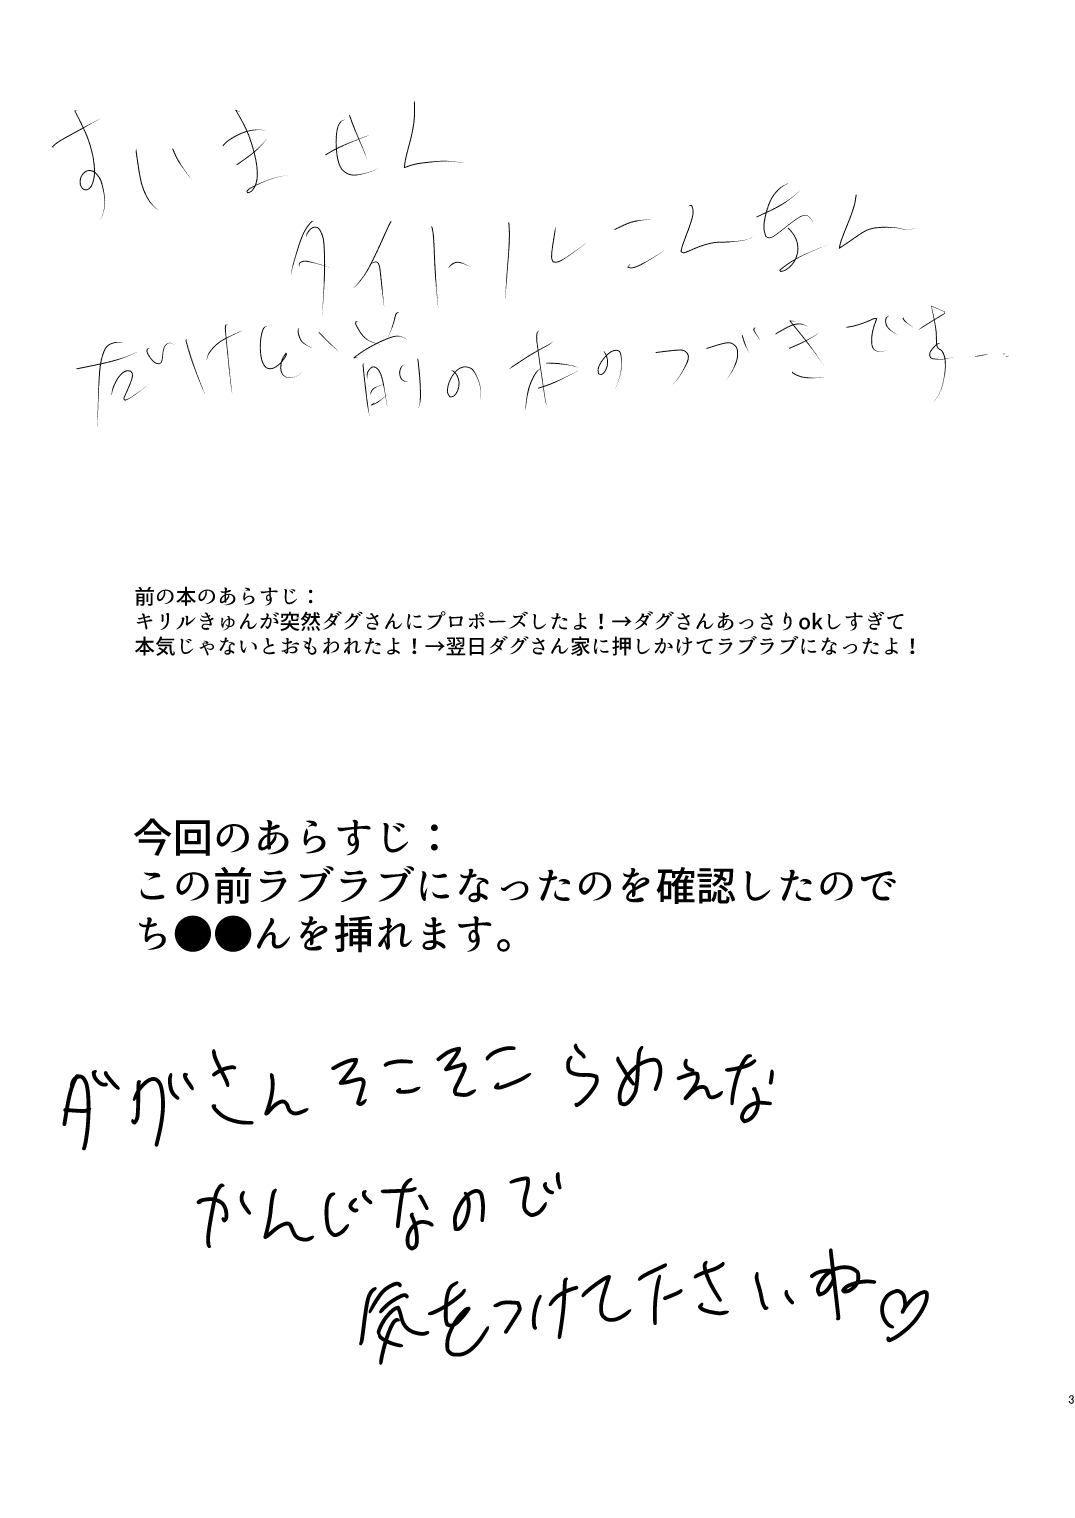 すいません
タイトルこんなん
だけど前の本のつづきです…
前の本のあらすじ：
キリルきゅんが突然ダグさんにプロポーズしたよ！→ダグさんあっさりokしすぎて
本気じゃないとおもわれたよ！→翌日ダグさん家に押しかけてラブラブになったよ！
今回のあらすじ：
この前ラブラブになったのを確認したので
ち●●んを挿れます。
ダグさんそこそこらめぇな
かんじなので
気をつけて下さいね♡
3